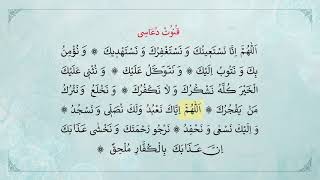 قُنُوتْ دُعَاسِى
اَللّٰهُمَّ اِنَّا نَسْتَعِينُكَ وَ نَسْتَغْفِرُكَ وَ نَسْتَهْدِيكَ ❋ وَ نُؤْمِنُ
بِكَ وَ نَتُوبُ اِلَيْكَ ❋ وَ نَتَوَكَّلُ عَلَيْكَ ❋ وَ نُثْنِى عَلَيْكَ
الْخَيْرَ كُلَّهُ نَشْكُرُكَ وَ لَا نَكْفُرُكَ ❋ وَ نَخْلَعُ وَ نَتْرُكُ
مَنْ يَفْجُرُكَ ❋ اَللّٰهُمَّ اِيَّاكَ نَعْبُدُ وَلَكَ نُصَلِّى وَ نَسْجُدُ ❋
وَ اِلَيْكَ نَسْعٰى وَ نَحْفِدُ ❋ نَرْجُو رَحْمَتَكَ وَ نَخْشٰى عَذَابَكَ
اِنَّ عَذَابَكَ بِالْكُفَّارِ مُلْحِقٌ ❋